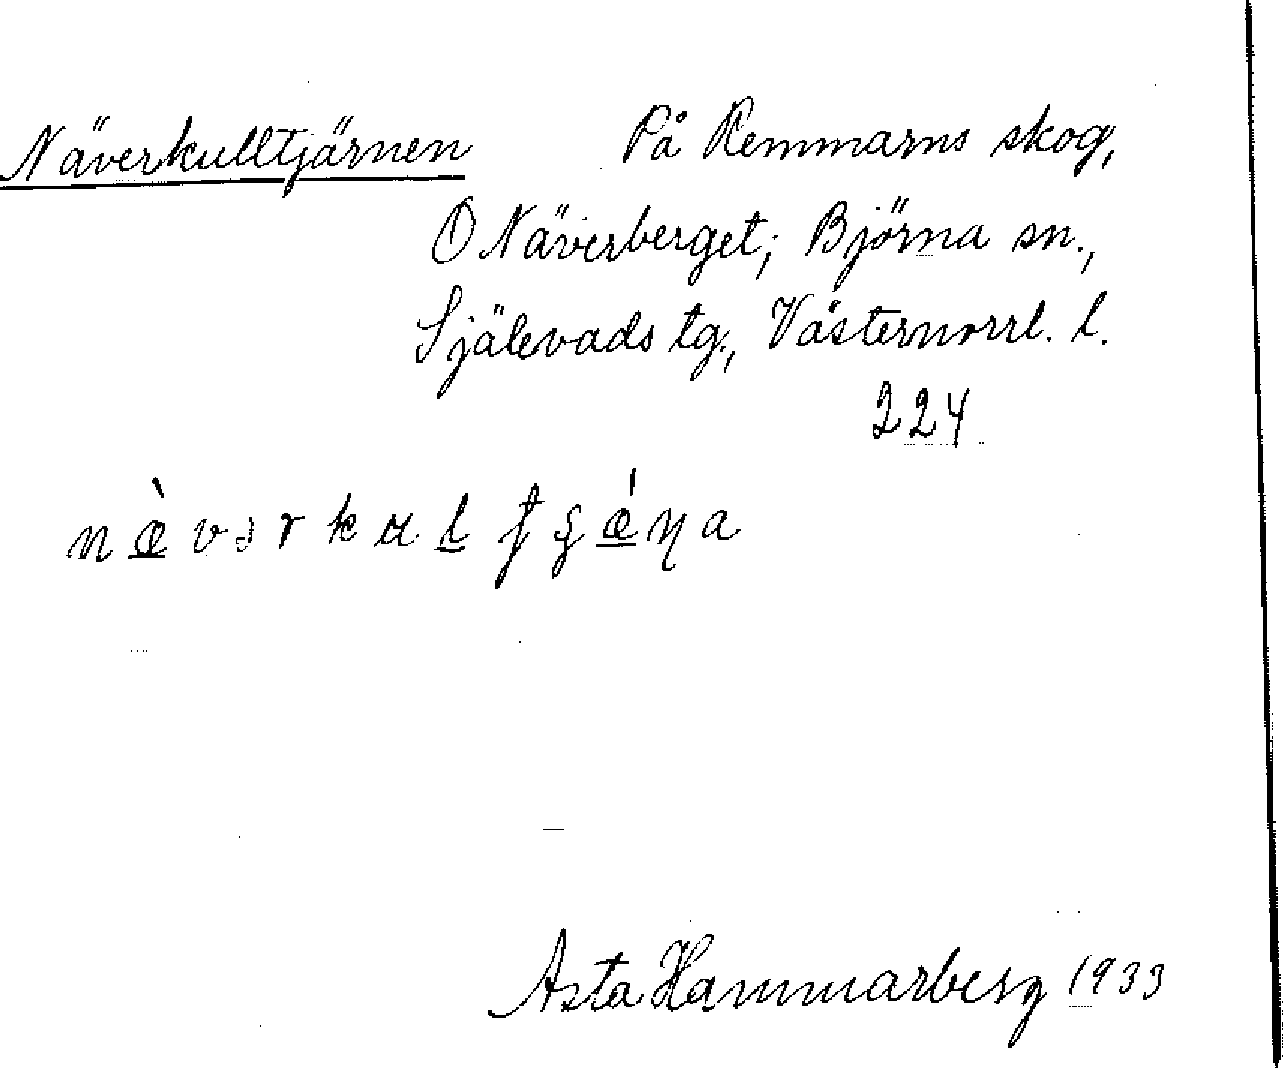 Näverkulltjärnen På Remmarns skog,
O Näverberget; Björna sn.,
Själevads tg., Västernorrl. l.
224
næ̀vərkulfʂǽɳa
Asta Hammarberg 1933